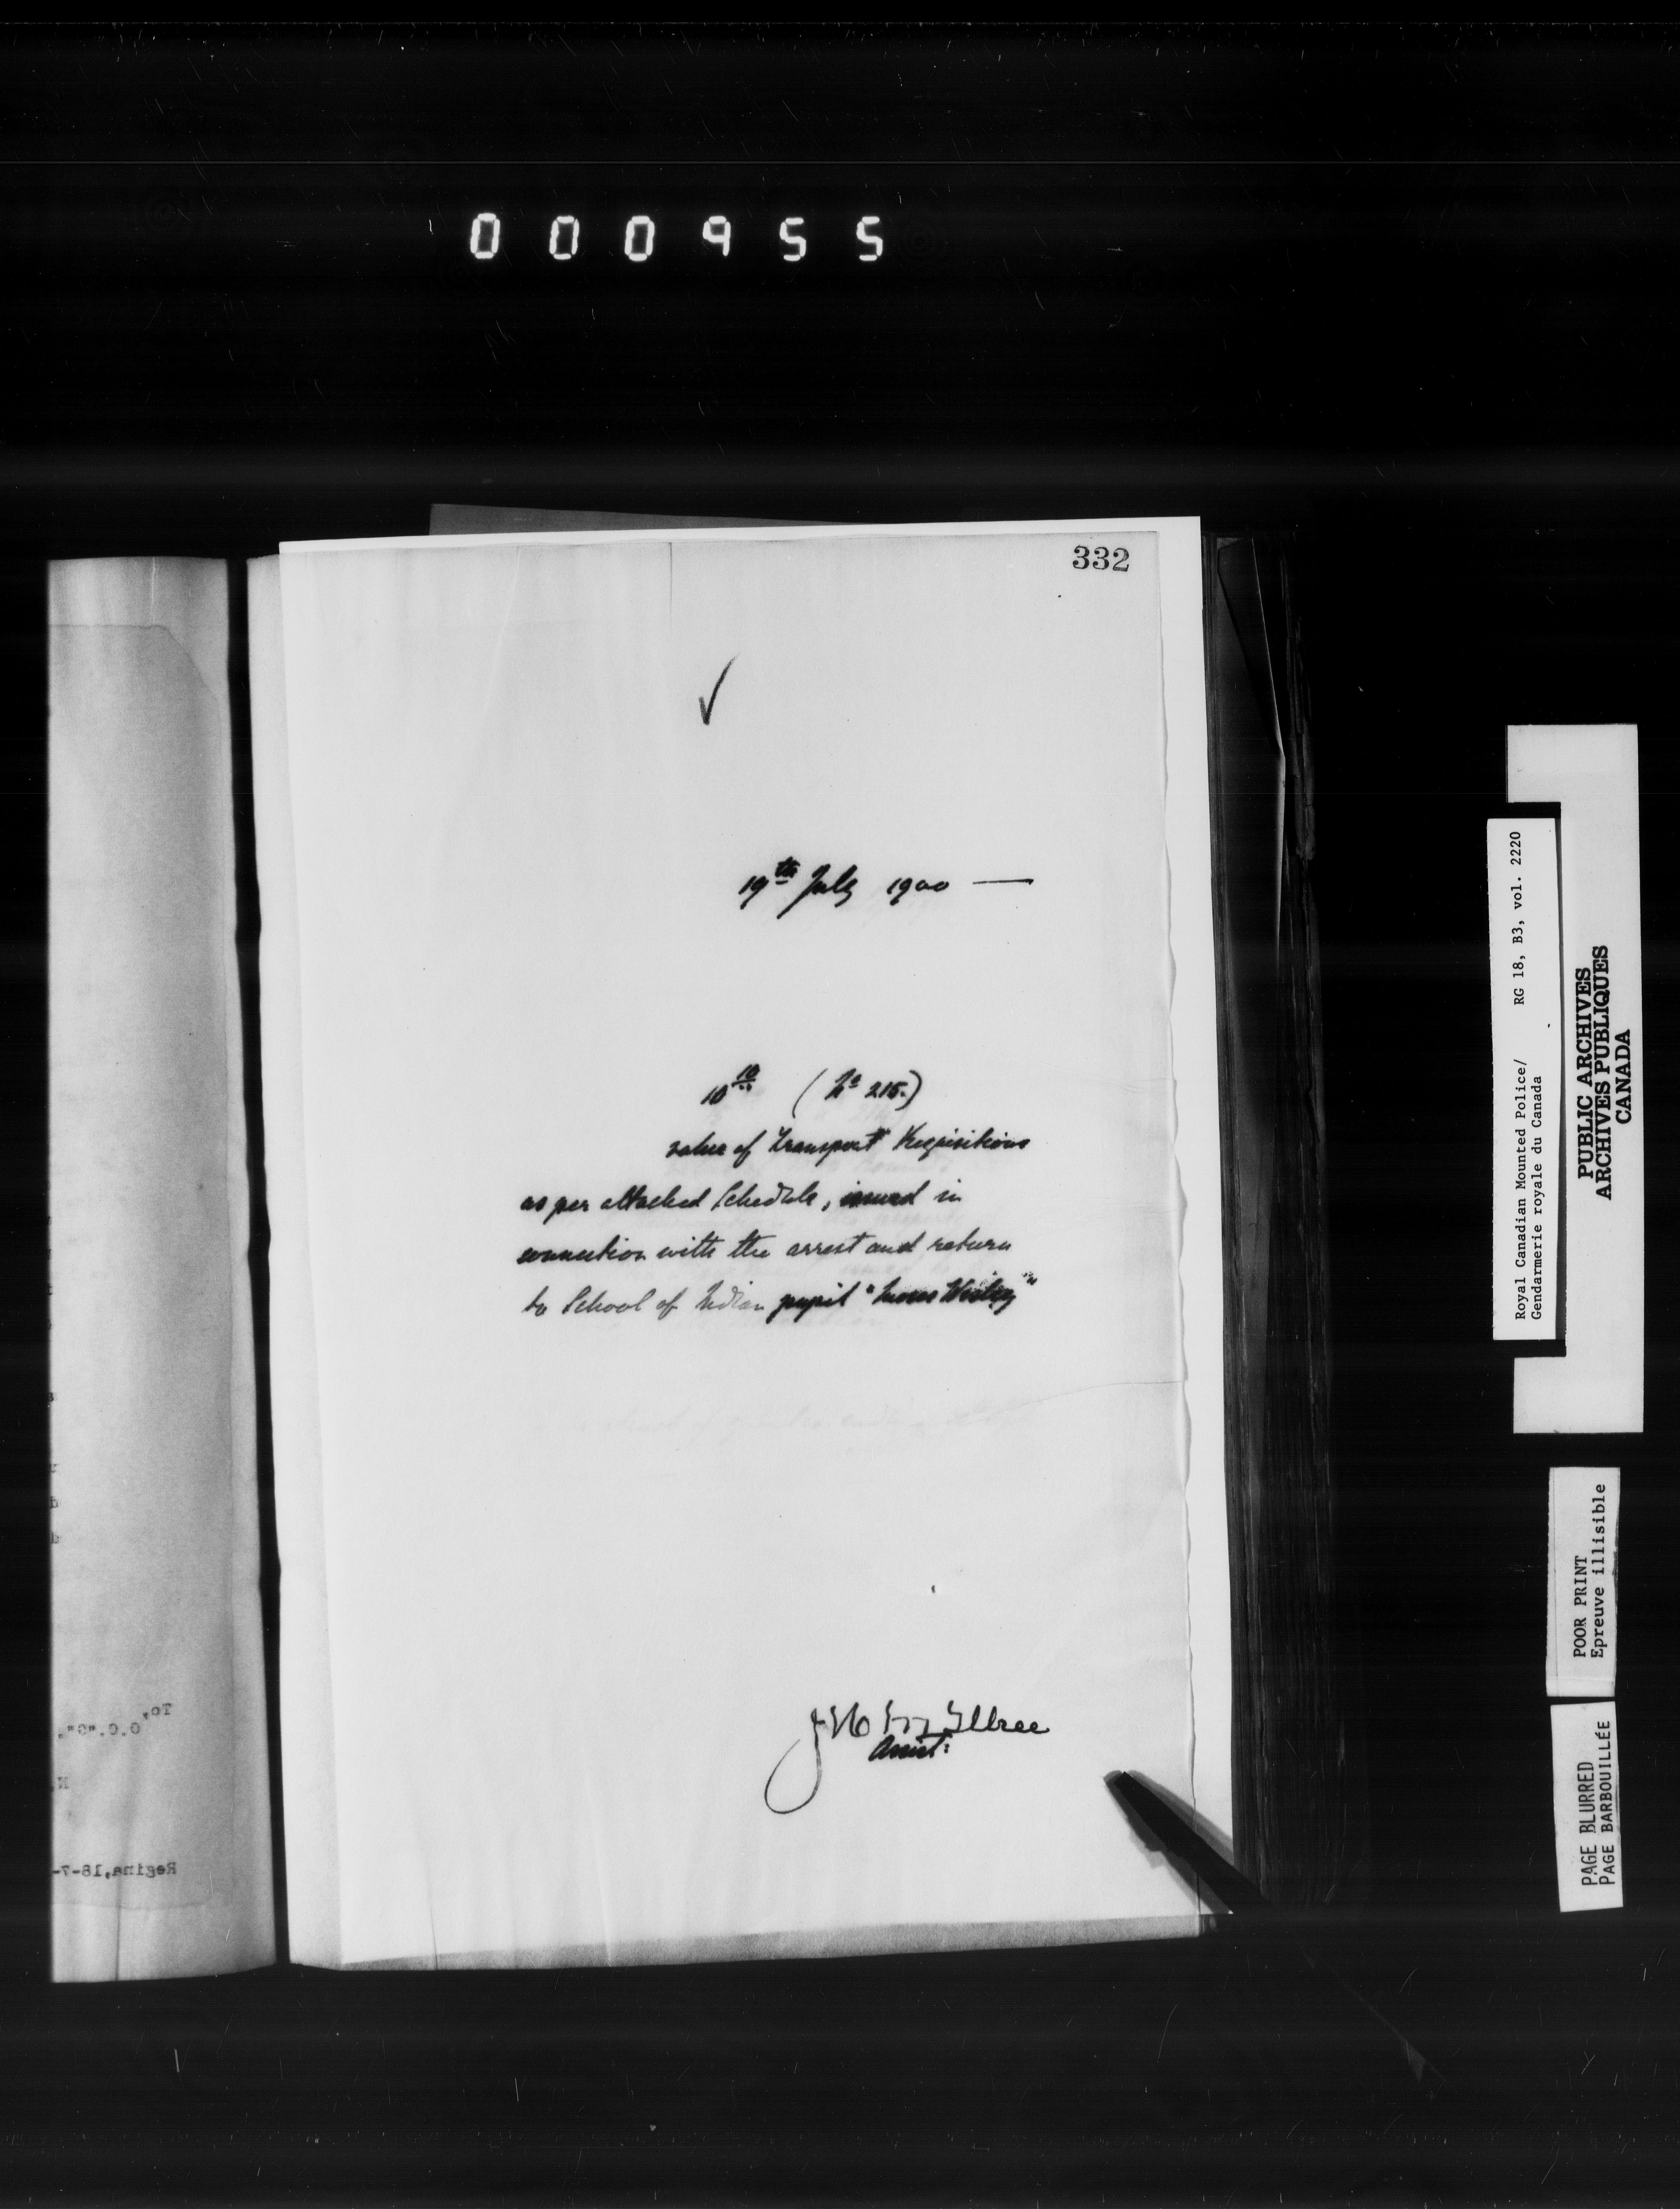 000955
332
19th July 1900 —
10 10 (No 215.)
value of Transport Requisitions
as per attached Schedule, issued in
connection with the arrest and return
to School of Indian pupil "
Assist:
To,
O.C."G".
Regina, 18-7-
Royal Canadian Mounted Police/ RG 18, B3, vol. 2220
Gendarmerie royale du Canada
PUBLIC ARCHIVES
ARCHIVES PUBLIQUES
CANADA
POOR PRINT
Epreuve illisible
PAGE BLURRED
PAGE BARBOUILLÉE